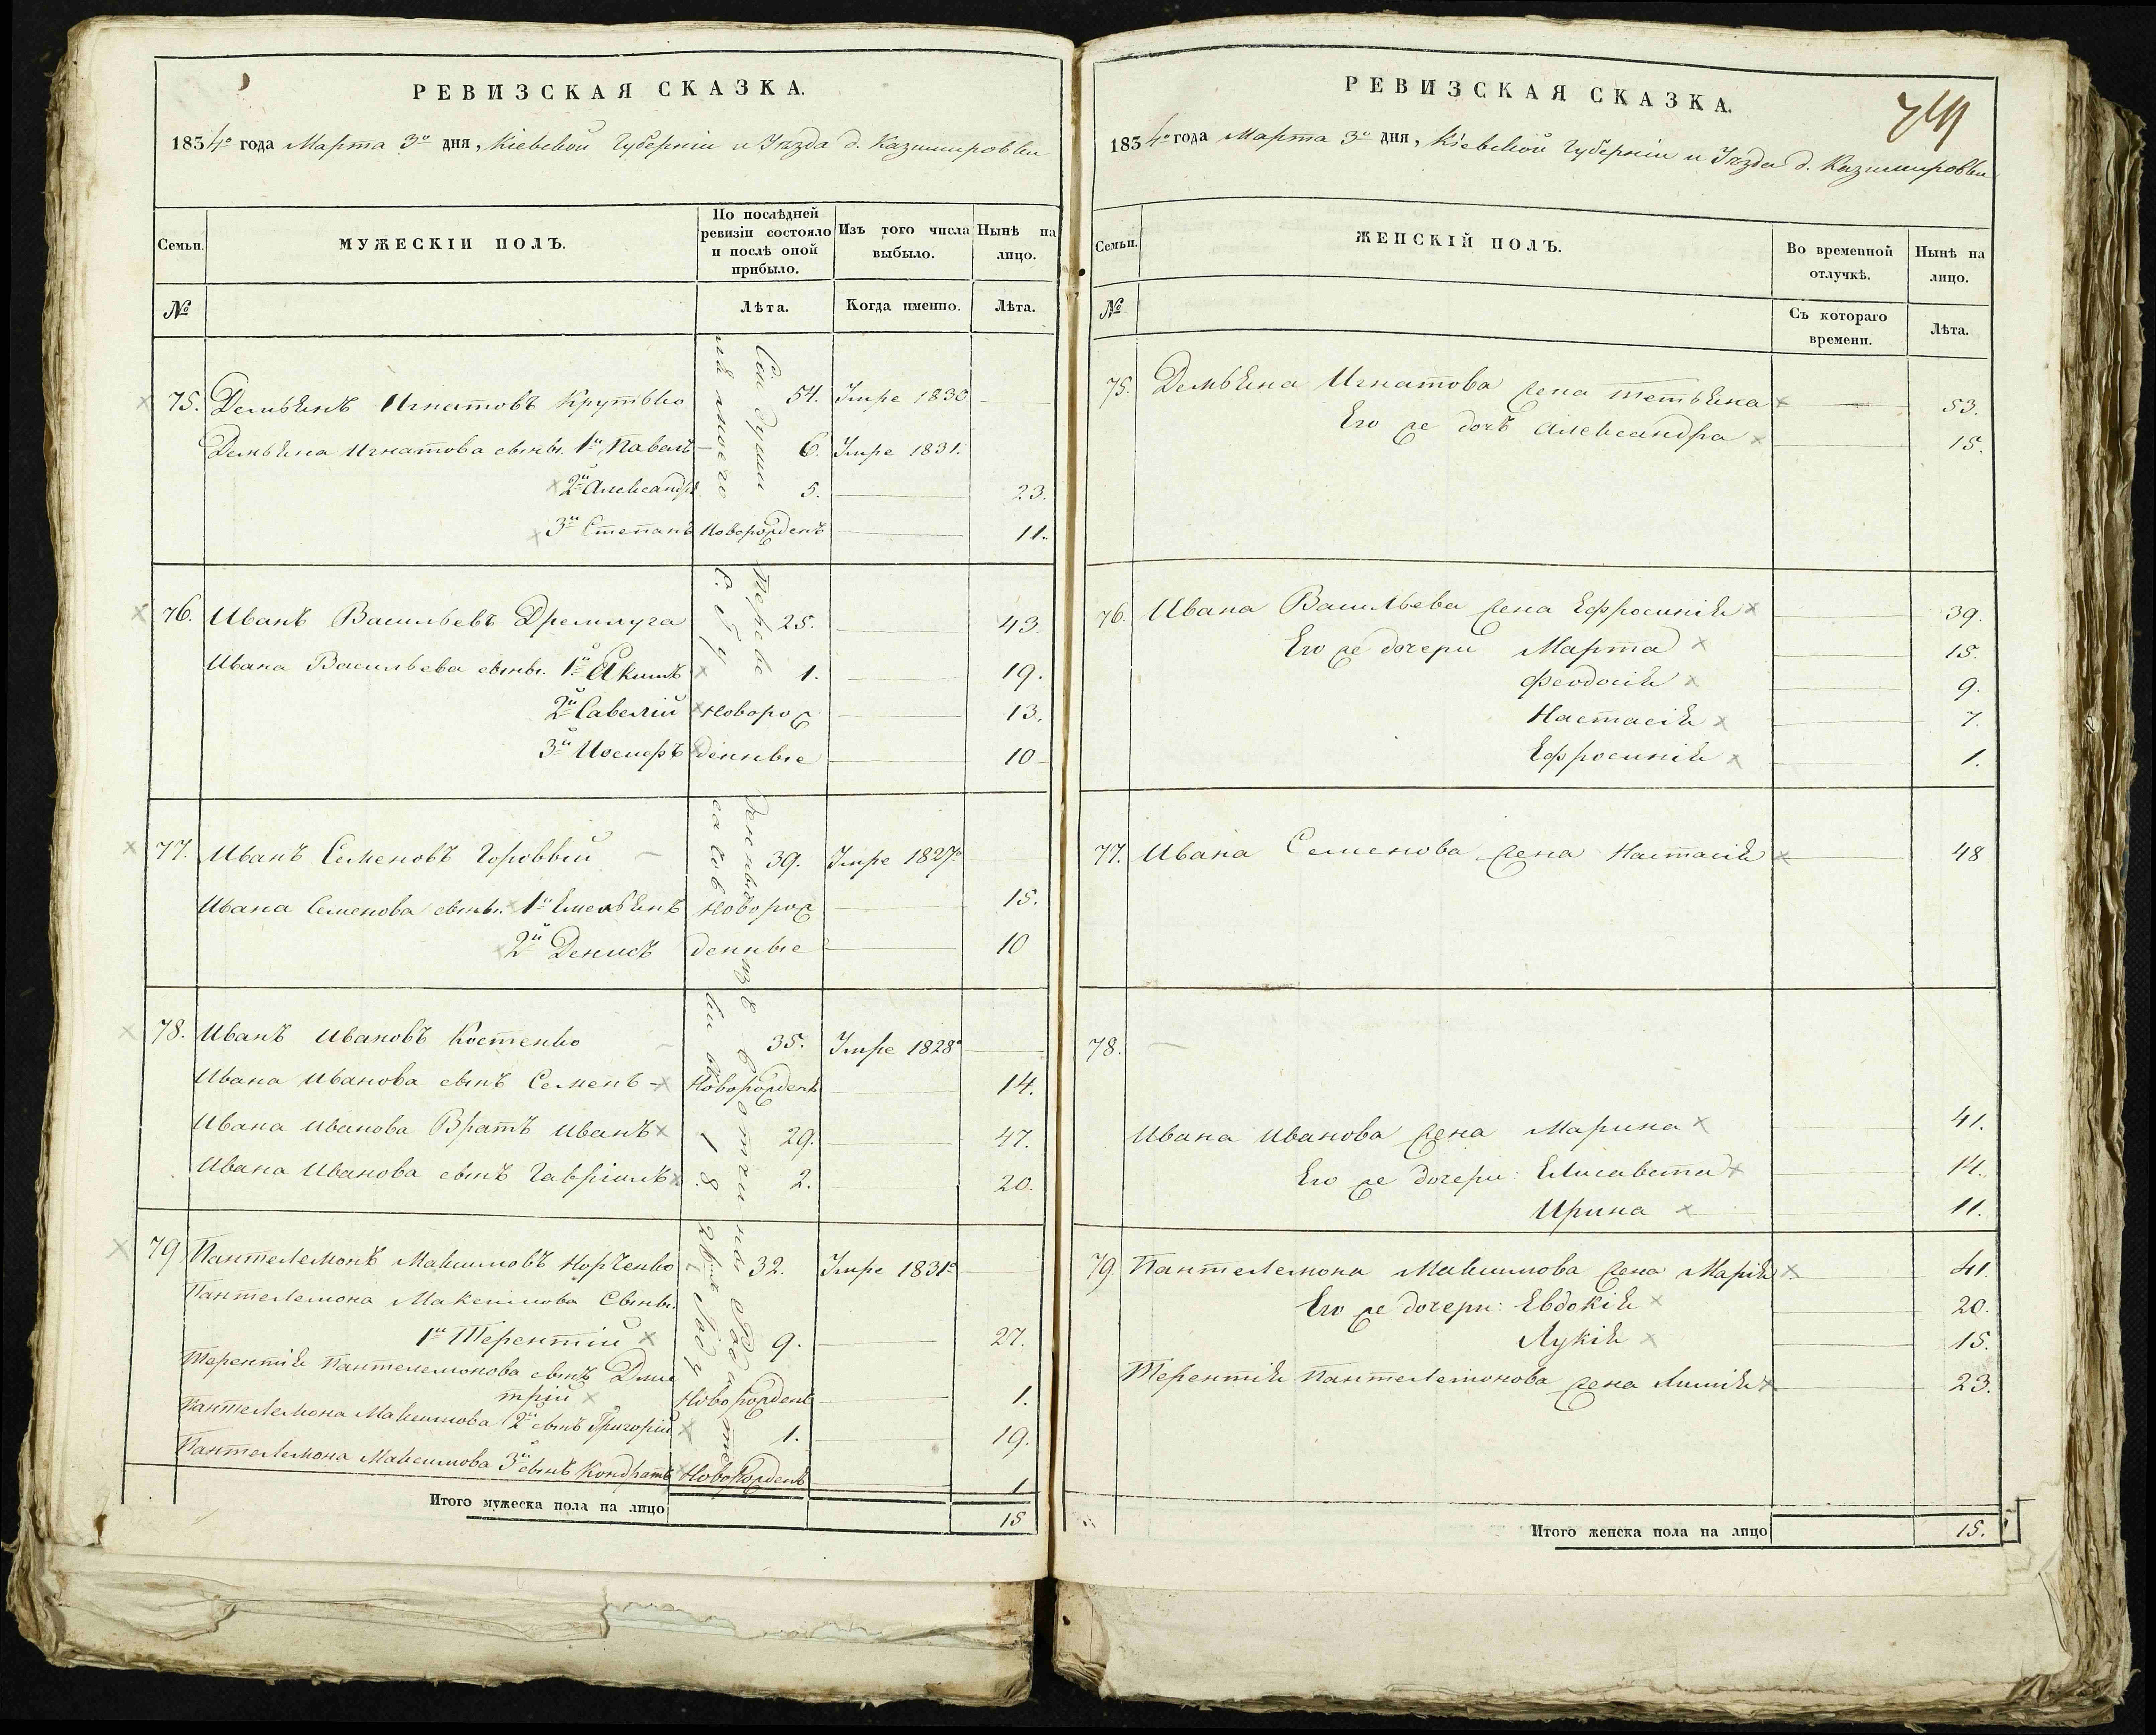 РЕВИЗСКАЯ СКАЗКА.
1834го года Марта 3го дня, Кіевской Губерніи и Уѣзда д. Казимировки
Семьи.
МУЖЕСКІЙ ПОЛЪ.
По послѣдней ревизіи состояло и послѣ оной прибыло.
Изъ того числа выбыло.
Нынѣ на лицо.
№
Лѣта.
Когда именно.
Лѣта.
75. Демьянъ Игнатовъ 54. Умре 1830
Демьяна Игнатова сыны. 1й Павелъ 6. Умре 1831.
2й Александръ 5. 23.
3й Степанъ Новорожденъ 11.
76. Иванъ Васильевъ Дремлуга 25. 43.
Ивана Васильева сыны. 1й Якимъ 1. 19.
2й Савелій Новорож 13.
3й Иосифъ денные 10
77. Иванъ Семеновъ Горовый 39. Умре 1827го
Ивана Семенова сыны. 1й Емельянъ Новорож 15.
2й Денисъ денные 10
78. Иванъ Ивановъ Костенко 35. Умре 1828го
Ивана Иванова сынъ Семенъ Новорожденъ 14.
Ивана Иванова Братъ Иванъ 29. 47.
Ивана Иванова сынъ Гавріилъ 2. 20.
79 Пантелемонъ Максимовъ 32. Умре 1831го
Пантелемона Максимова Сыны.
1й Терентій 9. 27.
Терентія Пантелемонова сынъ Дми
трій Новорожденъ 1.
Пантелемона Максимова 2й сынъ Григорій 1. 19.
Пантелемона Максимова 3й сынъ Кондратъ Новорожденъ 1
Итого мужеска пола на лицо 15
Сіи души
переве
денные
изъ
вотчины
1828
году
РЕВИЗСКАЯ СКАЗКА.
1834го года Марта 3го дня, Кіевской Губерніи и Уѣзда д. Казимировки
Семьи.
ЖЕНСКІЙ ПОЛЪ.
Во временной отлучкѣ.
Нынѣ на лицо.
№
Съ котораго времени.
Лѣта.
75. Демьяна Игнатова жена Тетьяна 53.
Его же дочь Александра 15.
76. Ивана Васильева жена Ефросинія 39.
Его же дочери Марта 15.
Феодосія 9.
Настасія 7.
Ефросинія 1.
77. Ивана Семенова жена Настасія 48
78.
Ивана Иванова жена Марина 41.
Его же дочери: Елисавета 14.
Ирина 11.
79. Пантелемона Максимова жена Марія 41.
Его же дочери: Евдокія 20.
Лукія 15.
Терентія Пантелемонова жена 23.
Итого женска пола на лицо 15.